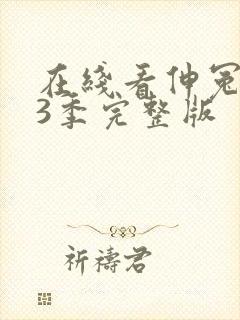 在綫看伸冤
3季完整版
祈禱君